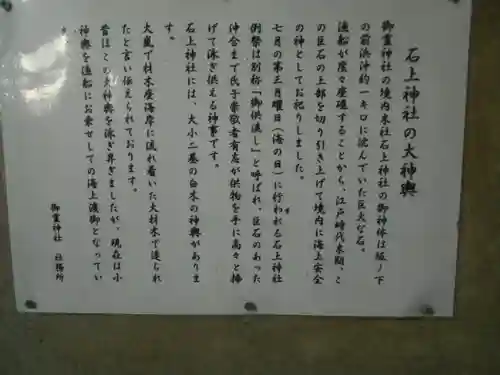 石上神社の大神輿
御霊神社の境内末社石上神社の御神体は坂ノ下
の前浜沖約一キロに沈んでいた巨大な石。
漁船が度々座礁することから、江戸時代末期、こ
の巨石の上部を切り引き上げて境内に海上安全
の神としてお祀りしました。
七月の第三月曜日(海の日)に行われる石上神社
例祭は別称「御供流し」と呼ばれ、巨石のあった
沖合まで氏子崇敬者有志が供物を手に高々と捧
げて泳ぎ供える神事です。
石上神社には、大小二基の白木の神輿がありま
す。
大嵐で材木座海岸に流れ着いた大材木で造られ
たと言い伝えられております。
昔はこの大神輿を泳ぎ舁ぎましたが、現在は小
神輿を漁船にお乗せしての海上渡御となってい
御霊神社 社務所